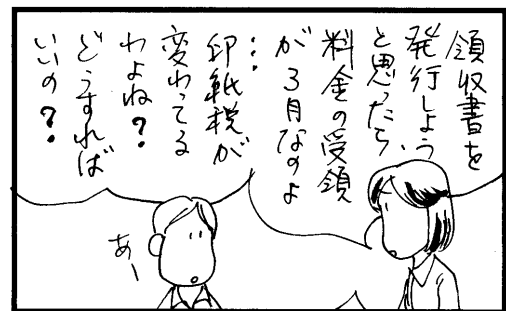 領収書を
発行しよう
と思ったら、
料金の受領
が3月なのよ
…
印紙税が
変わってる
わよね?
どうすれば
いいの?
あー